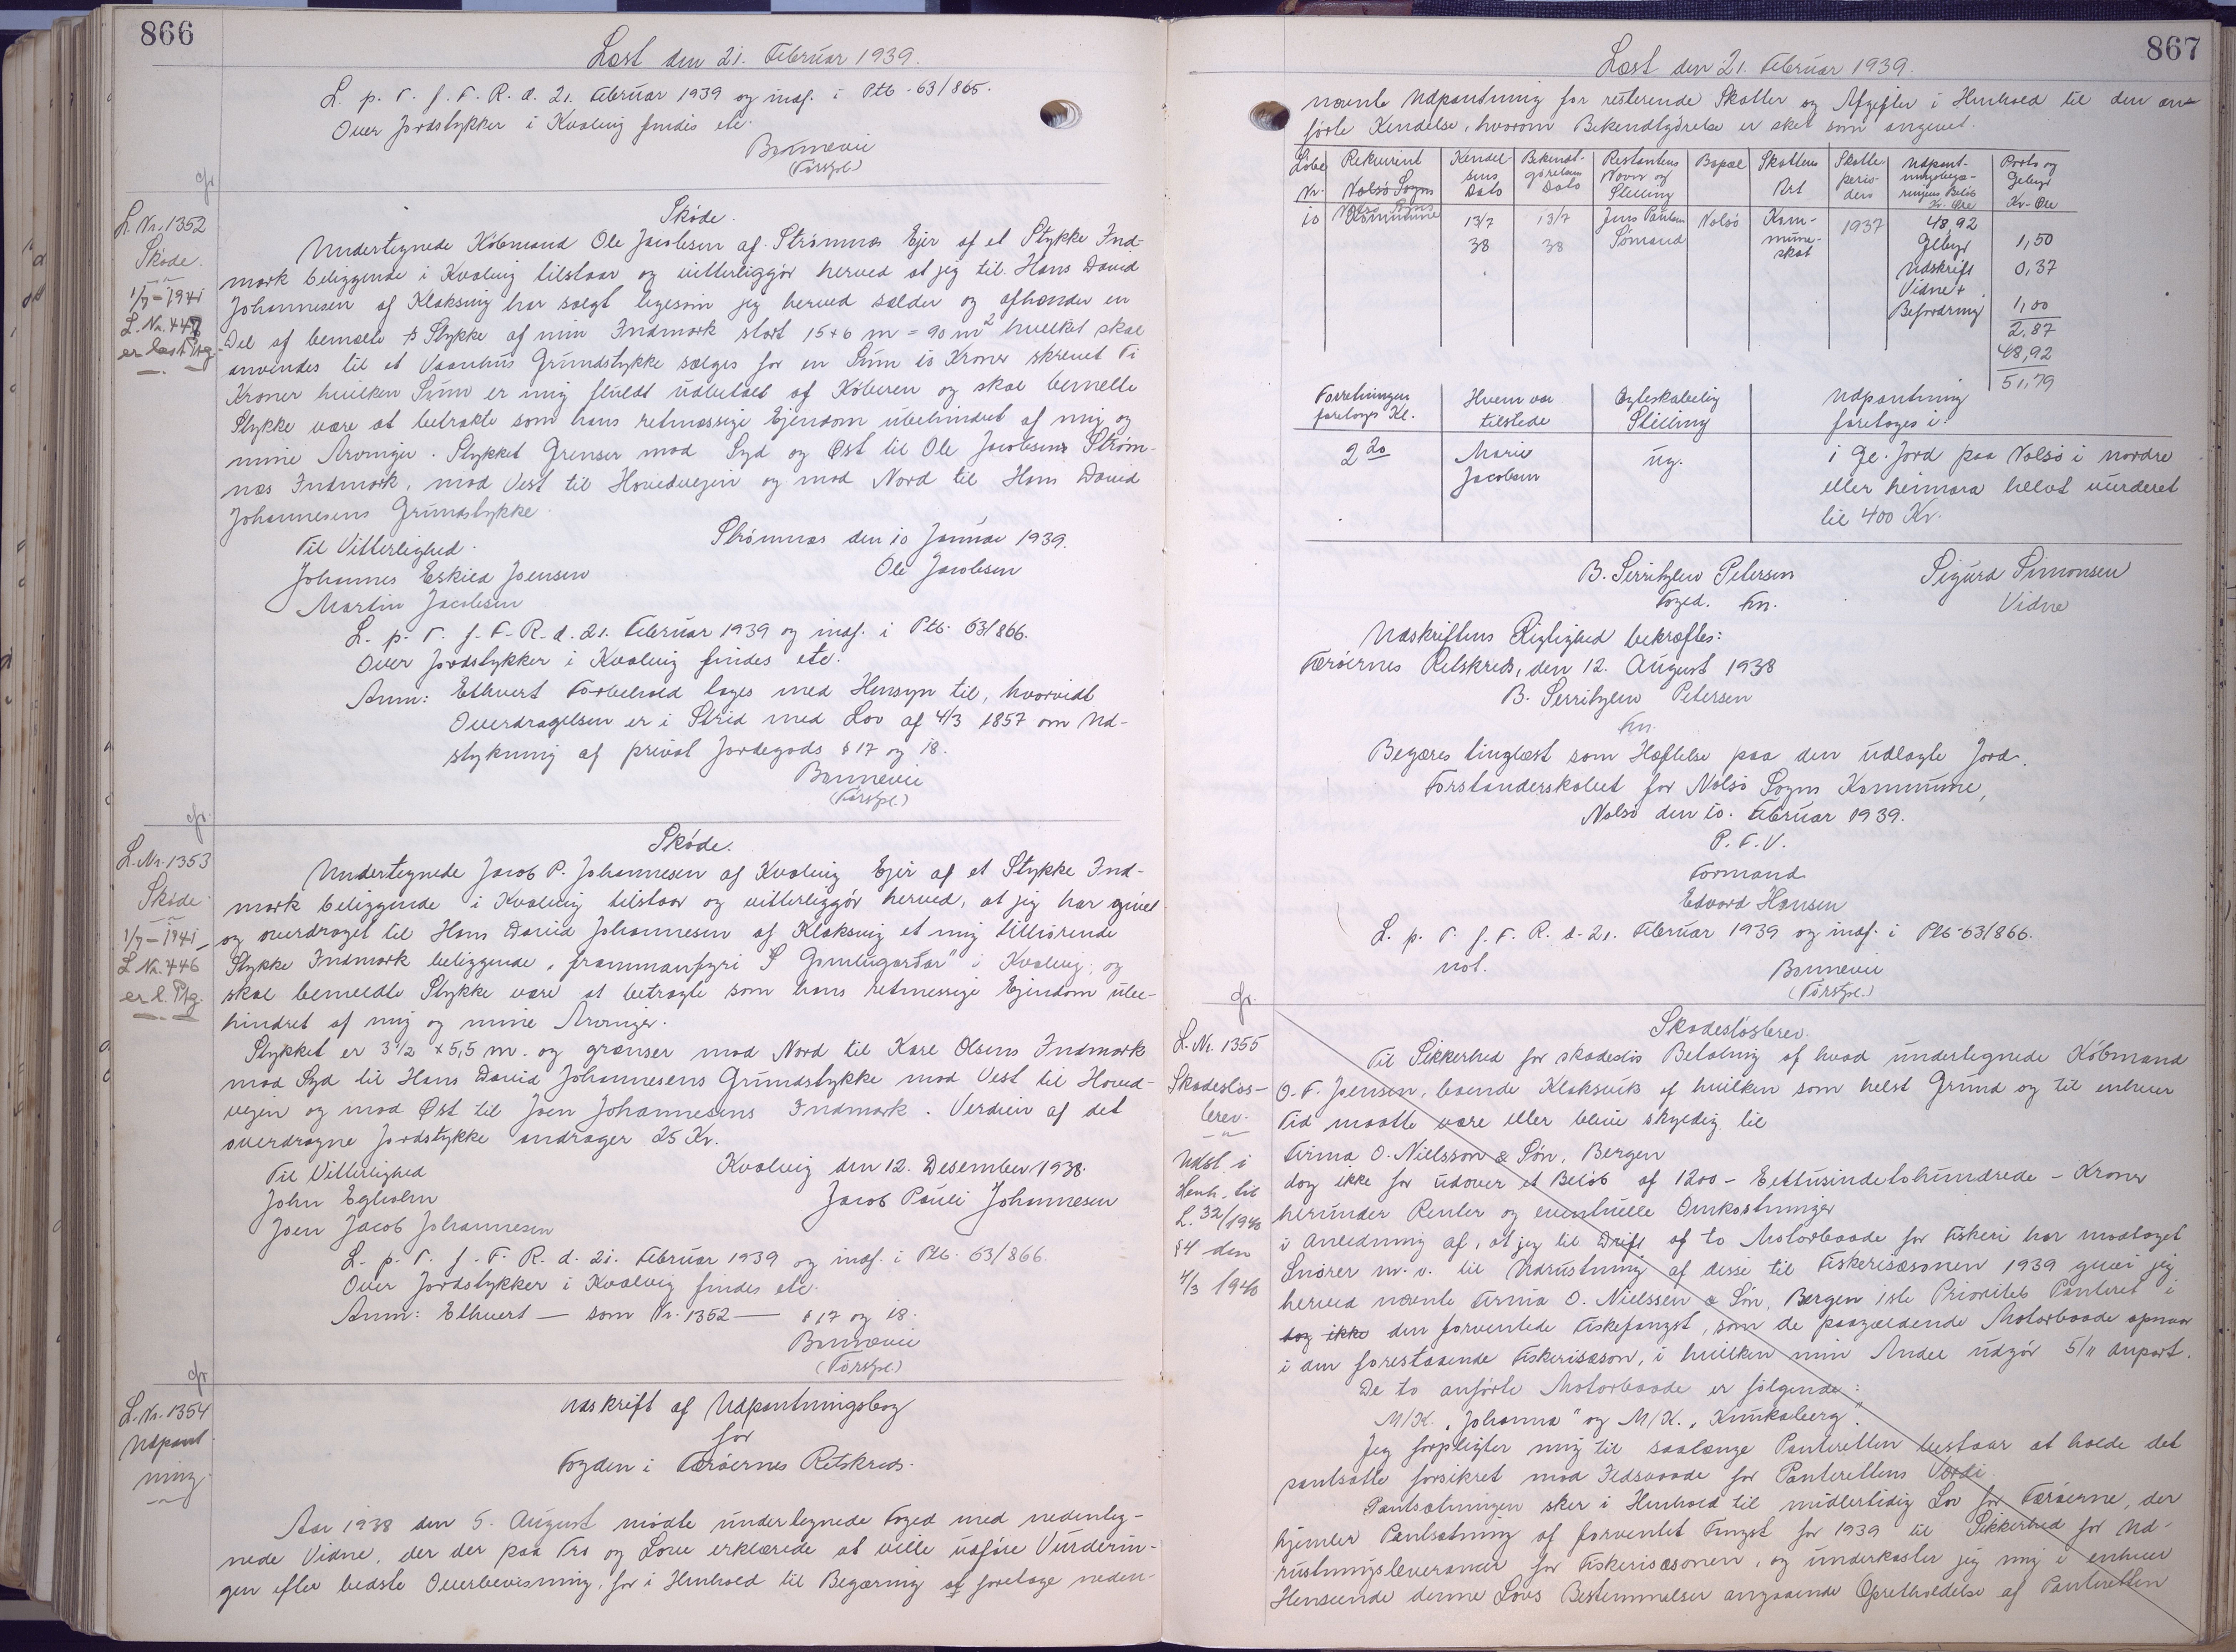 866
Læst den 21. Februar 1939.
L. p. T. f. F. R. d. 21. Februar 1939 og indf. i Ptb. 63/865.
Over Jordstykker i Kvalvig findes etc.
Bonnevie
(Førstpl.)
L. Nr. 1352
Skøde.
1/7 - 1941
L. Nr. 447
er læst Ptg.
Skøde.
Undertegnede Købmand Ole Jacobsen af Strømnæs Ejer af et Stykke Ind-
mark beliggende i Kvalvig tilstaar og vitterliggör herved at jeg til Hans David
Johannesen af Klaksvig har solgt ligesom jeg herved sælder og afhænder en
Del af bemælte Stykke af min Indmark stort 15 + 6 m = 90 m² hvilket skal
anvendes til et Vaanhus Grundstykke sælges for en Sum 10 Kroner skrevet Ti
Kroner hvilken Sum er mig fluldt udbetalt af Køberen og skal bemelte
Stykke være at betrakte som hans retmæssige Ejendom ubehindret af mig og
mine Arvinger. Stykket Grenser mod Syd og Øst til Ole Jacobsens Strøm-
næs Indmark, mod Vest til Hovedvejen og mod Nord til Hans David
Johannesens Grundstykke.
Til Vitterlighed.
Strømnæs den 10 Januar 1939.
Johannes Eskild Joensen
Ole Jacobsen
Martin Jacobsen
L. p. T. f. F. R. d. 21. Februar 1939 og indf. i Ptb. 63/866.
Over Jordstykker i Kvalvig findes etc.
Anm: Ethvert Forbehold tages med Hensyn til, hvorvidt
Overdragelsen er i Strid med Lov af 4/3 1857 om Ud-
stykning af privat Jordegods § 17 og 18.
Bonnevie
(Førstpl.)
L. Nr. 1353
Skøde
1/7 - 1941
L Nr. 446
er l. Ptg.
Skøde.
Undertegnede Jacob P. Johannesen af Kvalvig Ejer af et Stykke Ind-
mark beliggende i Kvalvig tilstaar og vitterliggör herved, at jeg har givet
og overdraget til Hans David Johannesen af Klaksvig et mig tilhörende
Stykke Indmark beliggende, frammanfyri I Gomlugardar" i Kvalvig, og
skal bemeldte Stykke være at betragte som hans retmessige Ejendom ube-
hindret af mig og mine Arvinger.
Stykket er 3 1/2 + 5,5 m. og grænser mod Nord til Karl Olsens Indmark
mod Syd til Hans David Johannesens Grundstykke mod Vest til Hoved-
vejen og mod Øst til Joen Johannesens Indmark. Verdien af det
overdragne Jordstykke andrager 25 Kr.
Til Vitterlighed
Kvalvig den 12. Desember 1938.
John Egholm
Jacob Pauli Johannesen
Joen Jacob Johannesen
L. p. T. f. F. R. d. 21. Februar 1939 og indf. i Ptb. 63/866.
Over Jordstykker i Kvalvig findes etc.
Anm: Ethvert — som Nr. 1352 — § 17 og 18.
Bonnevie
(Førstpl.)
L. Nr. 1354
Udpant
ning
Udskrift af Udpantningsbog
for
Fogden i Færöernes Retskreds.
Aar 1938 den 5. August mödte undertegnede Foged med nedenteg-
nede Vidne, der der paa Tro og Love erklærede at ville udföre Vurderin-
gen efter bedste Overbevisning, for i Henhold til Begæring af foretage neden-
867
Læst den 21. Februar 1939.
nævnte Udpantning for resterende Skatter og Afgifter i Henhold til den an-
førte Kendelse, hvorom Bekendtgörelse er sket som angivet.
Löbe Nr. | Rekvirent Nolsö Sogns | Kendel- sens Dato | Bekendt- görelsens Dato | Restantens Navn og Stilling | Bopæl | Skattens Art | Skatte perio- den | Udpant- ningsbegæ- ringens Beløb Kr. Øre | Porto og Gebyr Kr. Øre
10 | Kommune | 13/7 38 | 13/7 38 | Jens Paulsen Sömand | Nolsö | Kom- mune- skat | 1937 | 48,92
Gebyr 1,50
Udskrift 0,37
Vidne +
Befordring 1,00
2,87
48,92
51,79
Forretningen foretoges Kl. | Hvem var tilstede | Ægteskabelig Stilling | Udpantning foretoges i:
2 20 | Marie Jacobsen | ug. | i Ge. Jord paa Nolsö i nordre
eller heimara helvt vurderet
til 400 Kr.
B. Serritzlew Petersen
Sigurd Simonsen
Foged. Fm.
Vidne
Udskriftens Rigtighed bekræftes:
Færöernes Retskreds, den 12. August 1938
B. Serritzlew Petersen
Fm.
Begæres tinglæst som Hæftelse paa den udlagte Jord.
Forstanderskabet for Nolsö Sogns Kommune,
Nolsö den 10. Februar 1939.
P. F. V.
Formand
Edvard Hansen
L. p. T. f. F. R. d. 21. Februar 1939 og indf. i Ptb. 63/866.
not.
Bonnevie
(Førstpl.)
L. Nr. 1355
Skadeslös-
brev.
Udsl. i
Henh. til
L. 32/1940
§ 4 den
4/3 1940
Skadeslösbrev.
Til Sikkerhed for skadeslös Betaling af hvad undertegnede Köbmand
O. F. Joensen, boende Klaksvik af hvilken som helst Grund og til enhver
Tid maatte være eller blive skyldig til
Firma O. Nielsson & Søn, Bergen
dog ikke for udover et Beløb af 1200 - Eettusindetohundrede - Kroner
herunder Renter og eventuelle Omkostninger
i Anledning af, at jeg til Drift af to Motorbaade for Fiskeri har modtaget
Snører m. v. til Udrustning af disse til Fiskerisæsonen 1939 giver jeg
herved nævnte Firma O. Nielssen & Søn, Bergen 1ste Prioritets Panteret i
dog ikke den forventede Fiskefangst, som de paagældende Motorbaade opnaar
i den forestaaende Fiskerisæson, i hvilken min Andel udgör 5/11 Anpart.
De to anførte Motorbaade er følgende:
M/K. "Johanna" og M/K. "Kunkaberg".
Jeg forpligter mig til saalænge Panteretten bestaar at holde det
pantsatte forsikret mod Ildsvaade for Panterettens Værdi.
Pantsætningen sker i Henhold til midlertidig Lov for Færøerne, der
hjemler Pantsætning af forventet Fangst for 1939 til Sikkerhed for Ud-
rustningsleverancer for Fiskerisæsonen, og underkaster jeg mig i enhver
Henseende denne Lovs Bestemmelser angaaende Opretholdelse af Panteretten